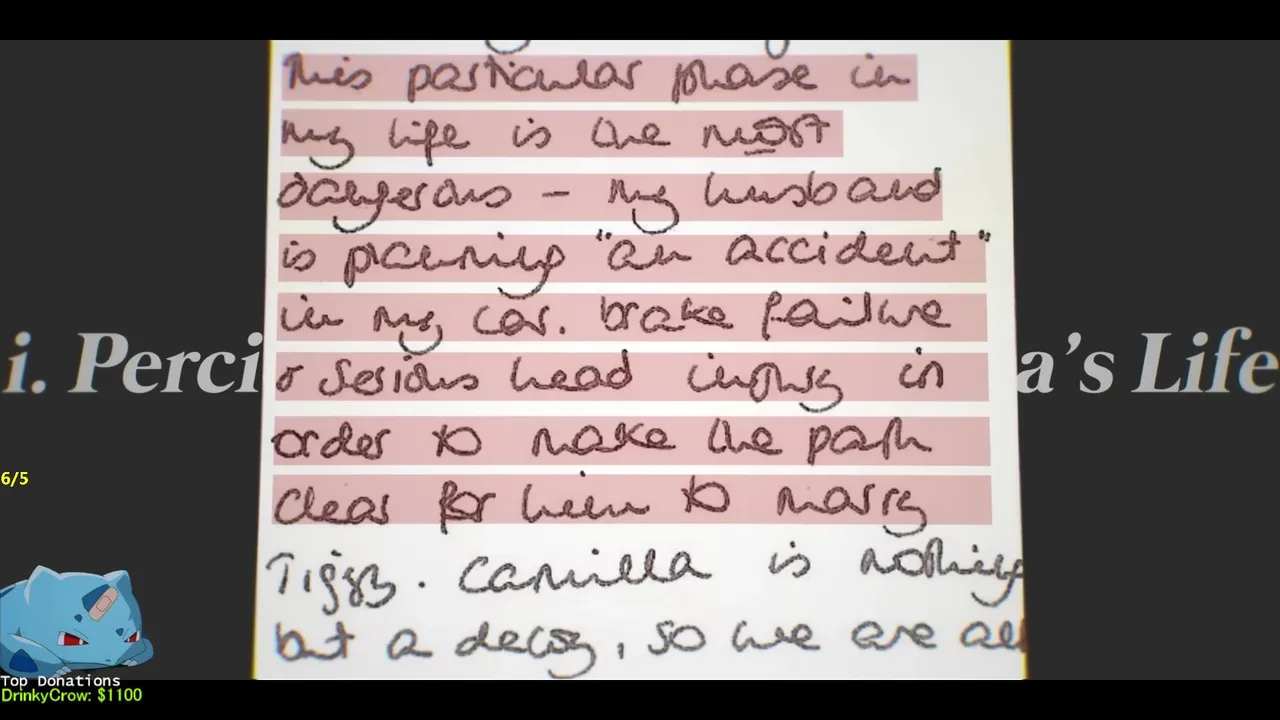 This particular phase in
my life is the most
dangerous - my husband
is planning "an accident"
in my car. brake failure
i. Perci
& serious head injury in
a's Life
order to make the path
6/5
clear for him to marry
Tiggy. Camilla is nothing
but a decoy, so we are all
Top Donations
DrinkyCrow: $1100